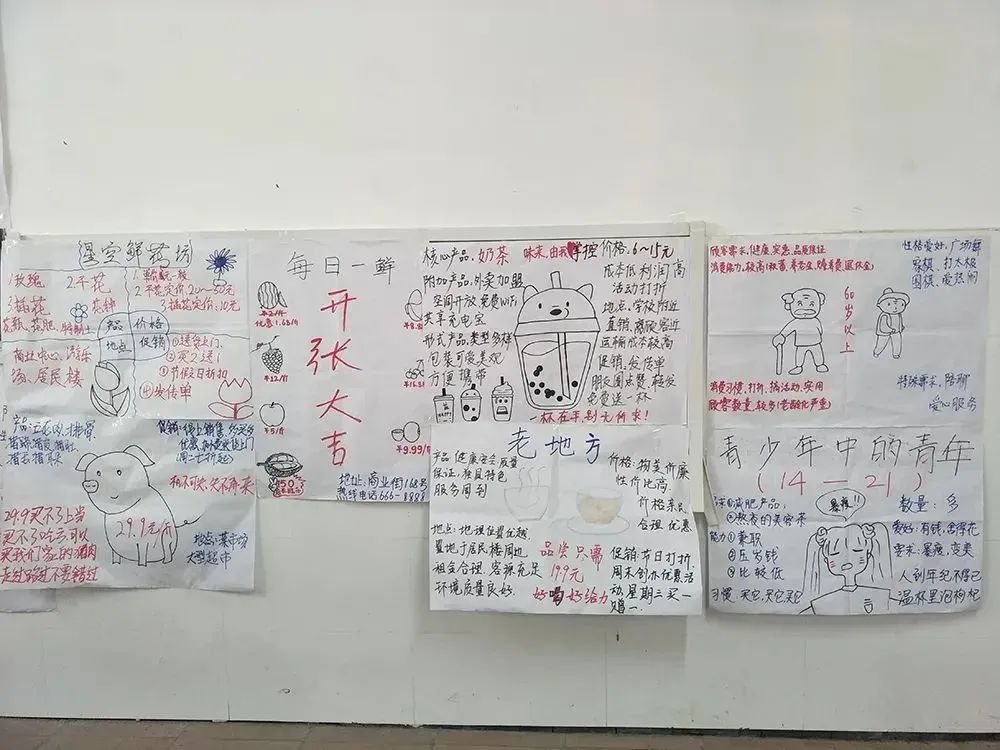 星空鲜花坊
1.玫瑰
2.干花
3.插花
花种
产品
价格
地点
促销
2.干花定价20~50元
3.插花定价:10元
商业中心、
居民楼
①送货上门
②买2送1
③节假日折扣
④发传单
每日一鲜
开张大吉
优惠1.68/斤
¥12/斤
¥5/斤
¥9.99/斤
地址:商业街168号
热线电话666-8888
核心产品:奶茶 味来,由我掌控
价格:6~15元
成本低利润高
活动打折
附加产品:外卖加盟
空间开放免费WiFi
共享充电宝
形式产品:类型多样
包装可爱美观
方便携带
地点:学校附近
直销:离顾客近
运输成本较高
促销:发传单
朋友圈点赞,转发
免费送一杯
一杯在手,别无所求!
顾客需求:健康,实惠,品质保证
性格爱好:广场舞
象棋、打太极
围棋、爱热闹
60岁以上
消费习惯:打折、搞活动、实用
顾客数量:较多(老龄化严重)
特殊需求:陪聊
爱心服务
促销:线上销售,多买多
优惠
29.9元/斤
29.9买不了上当
买不了吃亏,可以
买我们家的猪肉
走过路过不要错过
地点:菜市场
大型超市
老地方
产品:健康安全质量
保证,独具特色
服务周到
价格:物美价廉
性价比高
价格亲民
合理 优惠
地点:地理位置优越
置地于居民楼周边
租金合理 客源充足
环境质量良好.
品尝只需
19.9元
好喝好给力
促销:节日打折
周末创办优惠活
动,星期三买一
赠一.
青少年中的青年
(14-21)
暴瘦!!
数量:多
需求:减肥产品:
熬夜的美容茶
能力:①兼职
②压岁钱
③比较低
爱好:有钱,舍得花
需求:暴瘦,变美
人到年纪不得已
温杯里泡枸杞
习惯:买它,买它买它